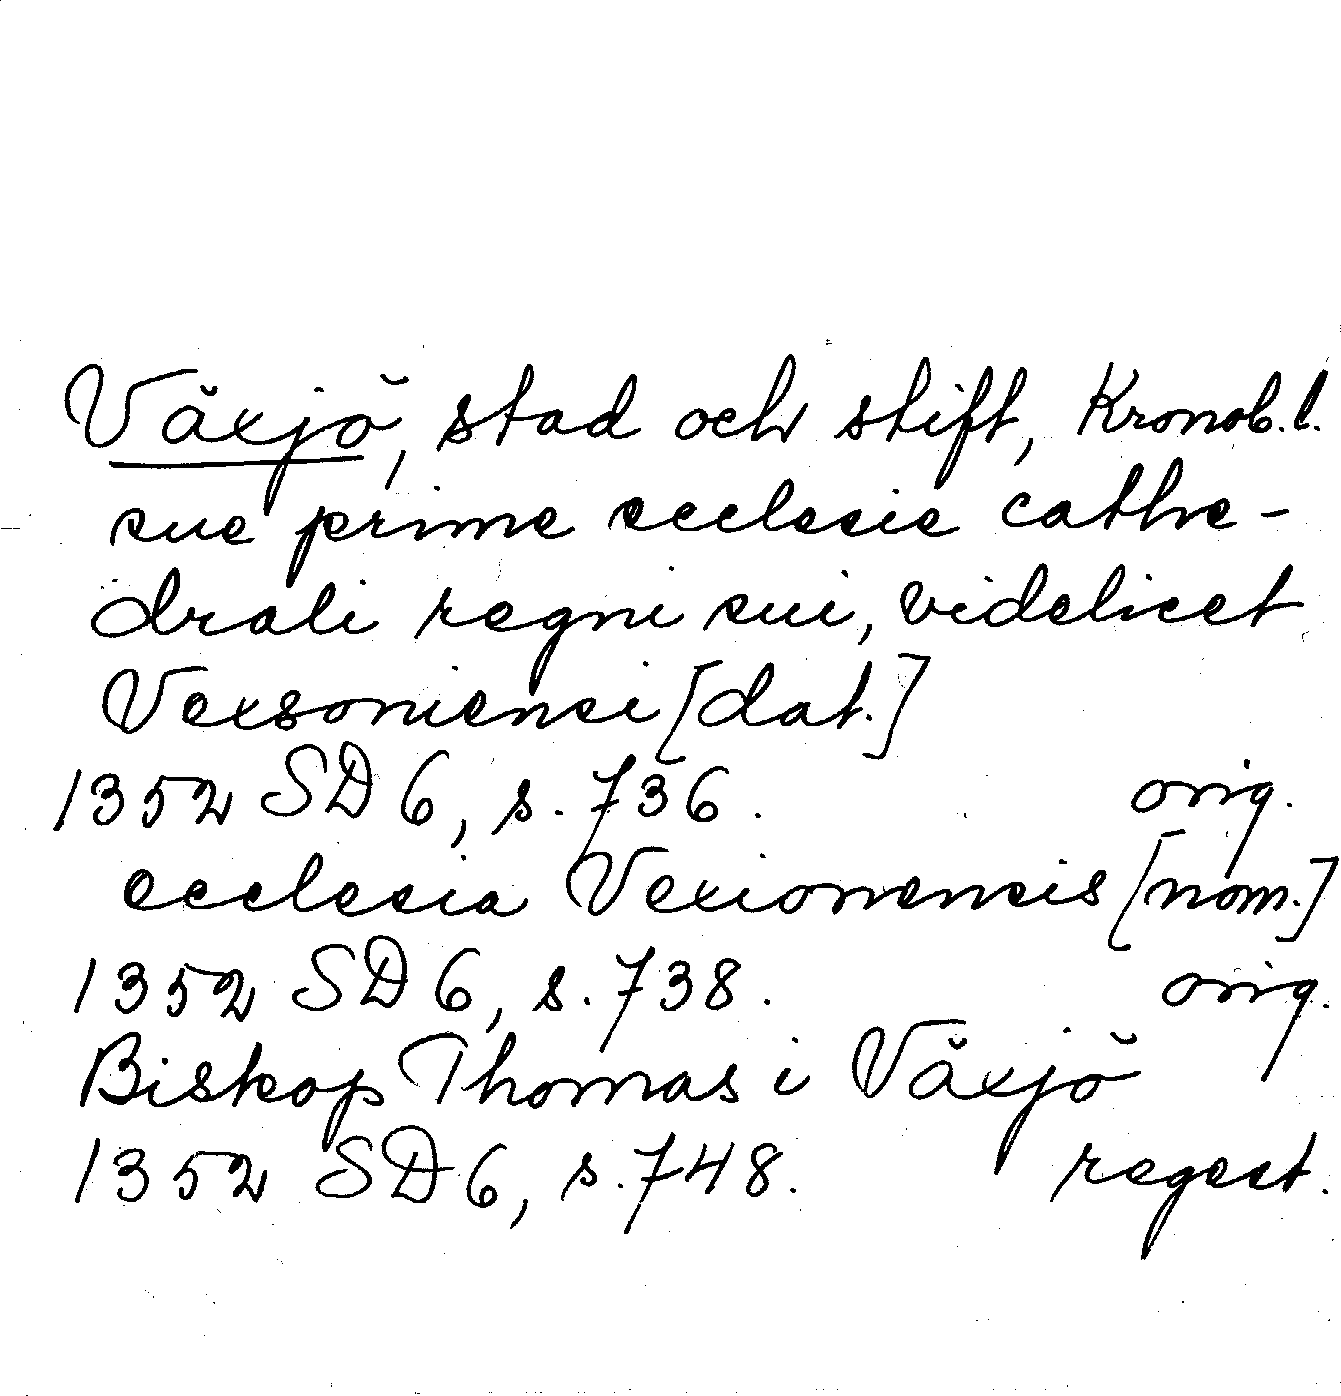 Växjö, stad och stift, Kronob.l.
sue prime ecclesie cathe-
drali regni sui, videlicet
Vexsoniensi [dat.]
1352 SD 6, s. 736. orig.
ecclesia Vexionensis [nom.]
1352 SD 6, s. 738. orig.
Biskop Thomas i Växjö
1352 SD 6, s. 748. regest.